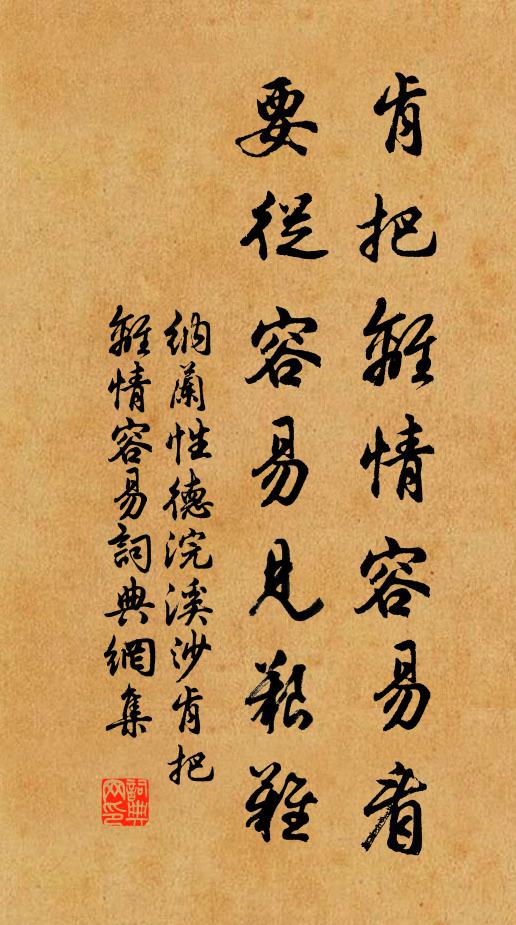 肯把離情容易看
要從容易見艱難
納蘭性德浣溪沙肯把
離情容易詞典網集
詞典
网印